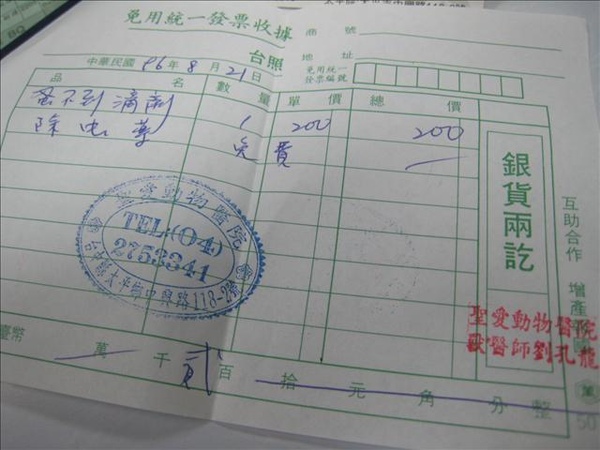 免用統一發票收據
商號
台照
地址
中華民國 96 年 8 月 21 日
免用統一
發票編號
品名 數量 單價 總價
蚤不到滴劑 1 200 200
除虫藥 免費 —
銀貨兩訖
互助合作 增產
聖愛動物醫院
TEL:(04)
2753341
太平市中興路118-2號
聖愛動物醫院
獸醫師劉孔龍
臺幣 萬 千 貳 百 拾 元 角 分 整
50